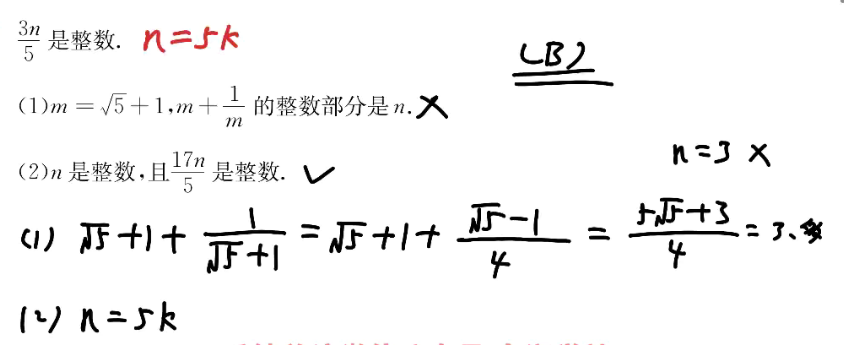 3n/5 是整数. n=5k
(B)
(1)m=√5+1,m+1/m 的整数部分是n.×
n=3 ×
(2)n是整数,且17n/5 是整数. ✓
(1) √5+1+1/(√5+1)=√5+1+(√5-1)/4=(5√5+3)/4=3.
(2) n=5k